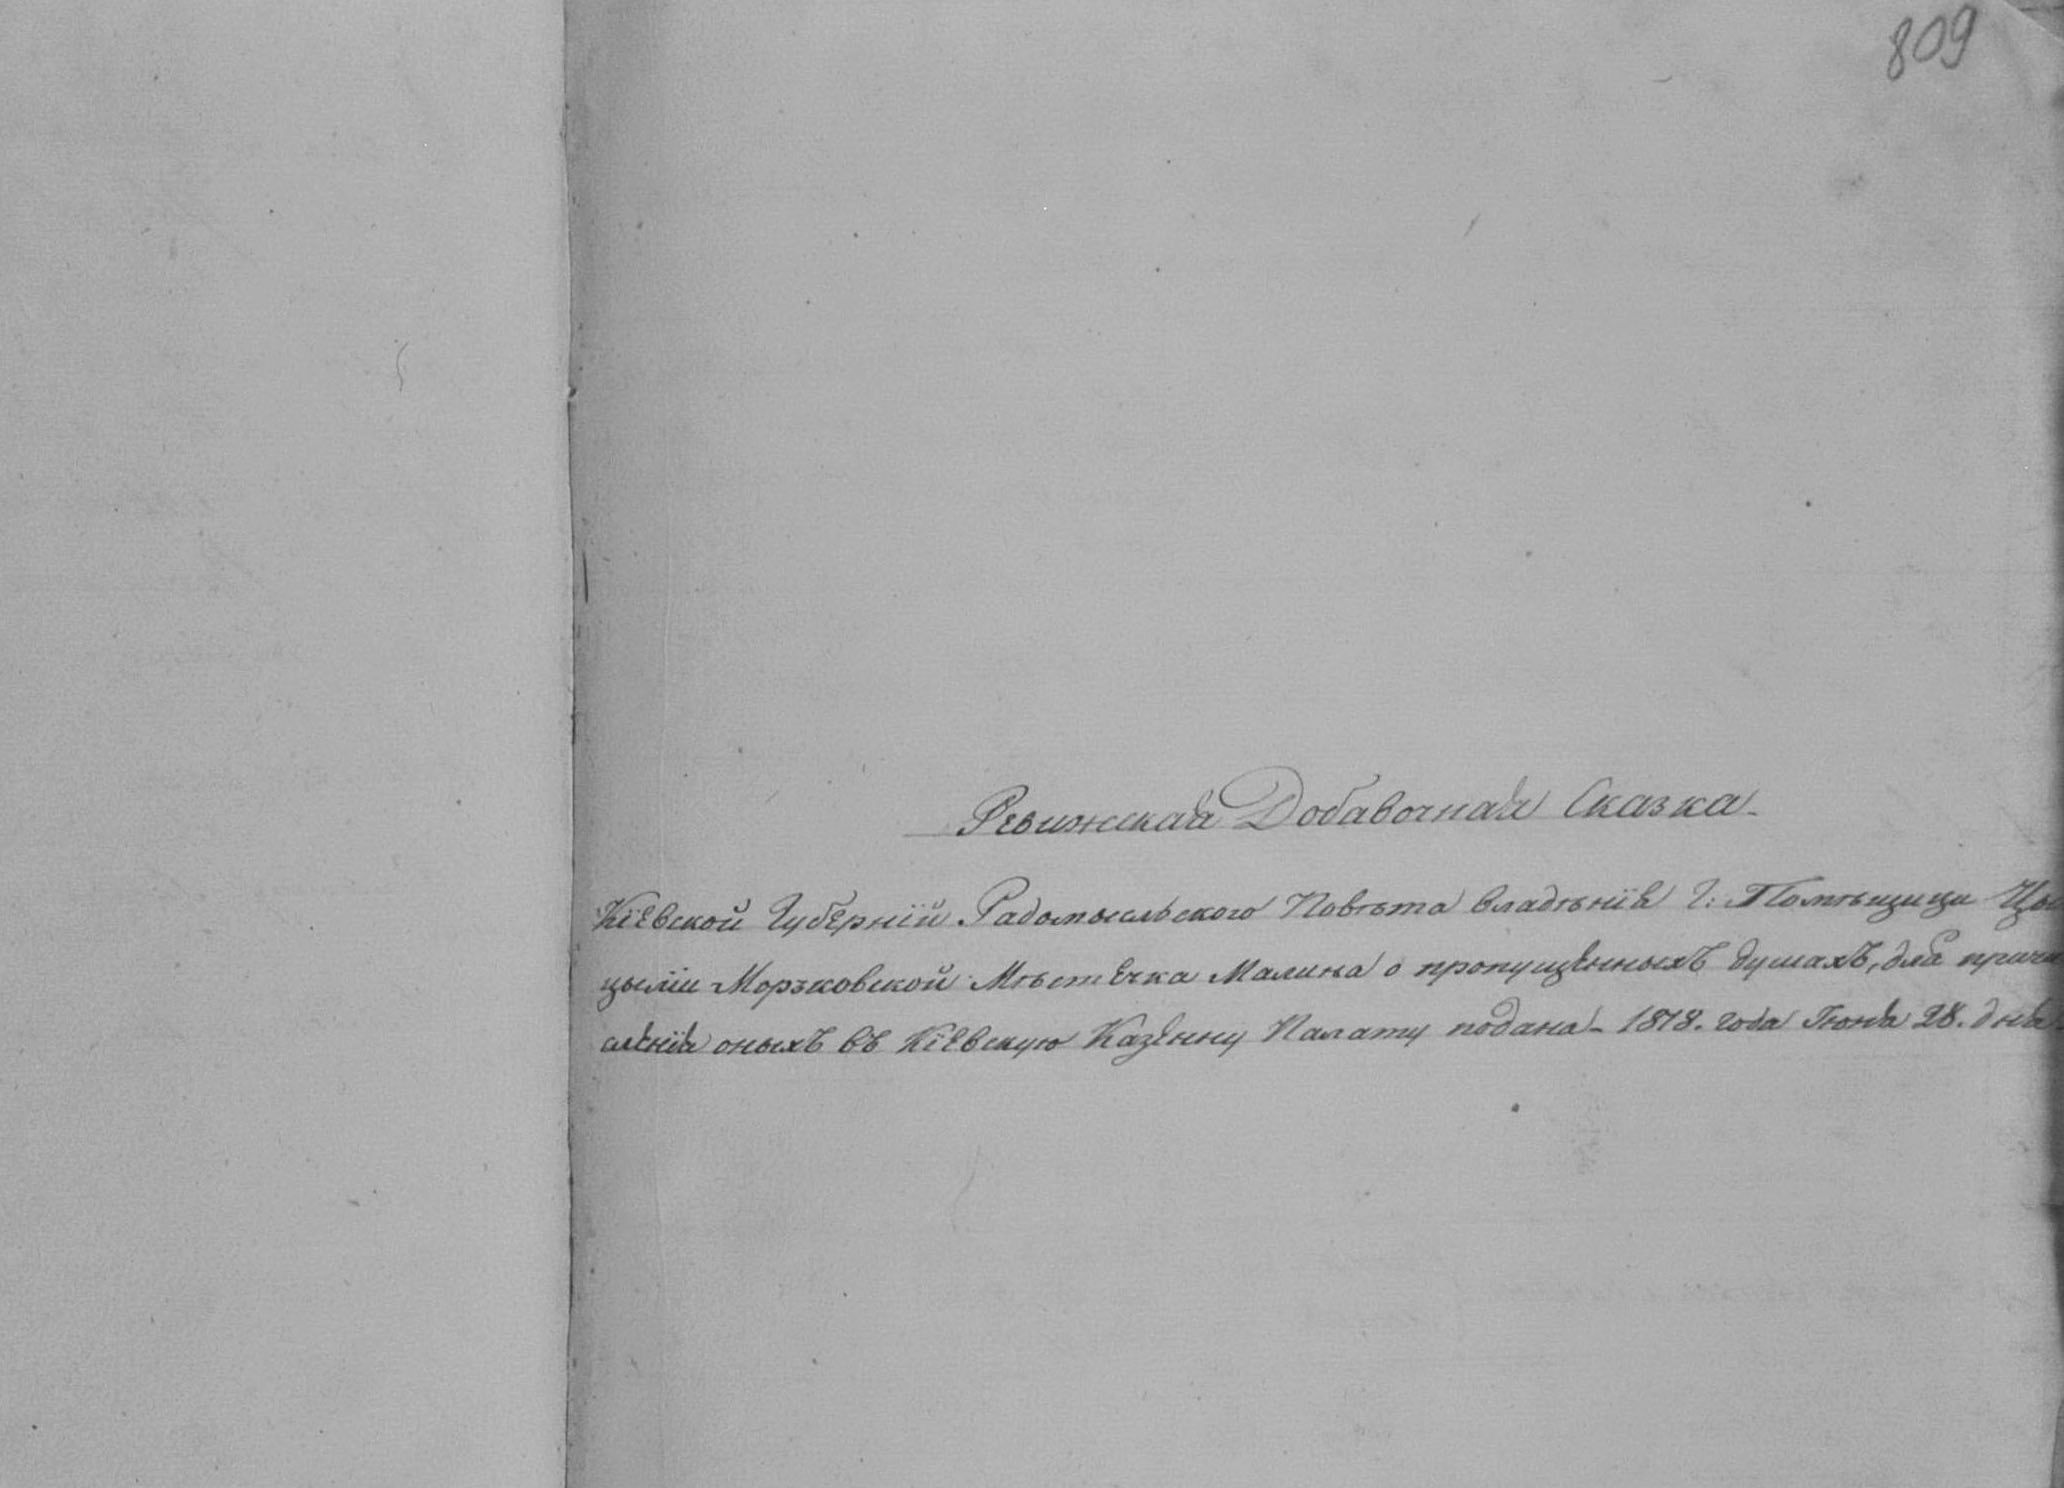 809
Ревижская Добавочная Сказка
Кіевской Губерніи Радомысльского Повѣта владѣнія Г: Помѣщици Цы
цыліи Моръковской Мѣстечка Малина о пропущенныхъ душахъ, для причи
сленія оныхъ въ Кіевскую Казенну Палату подана - 1818. года Іюня 28. дня